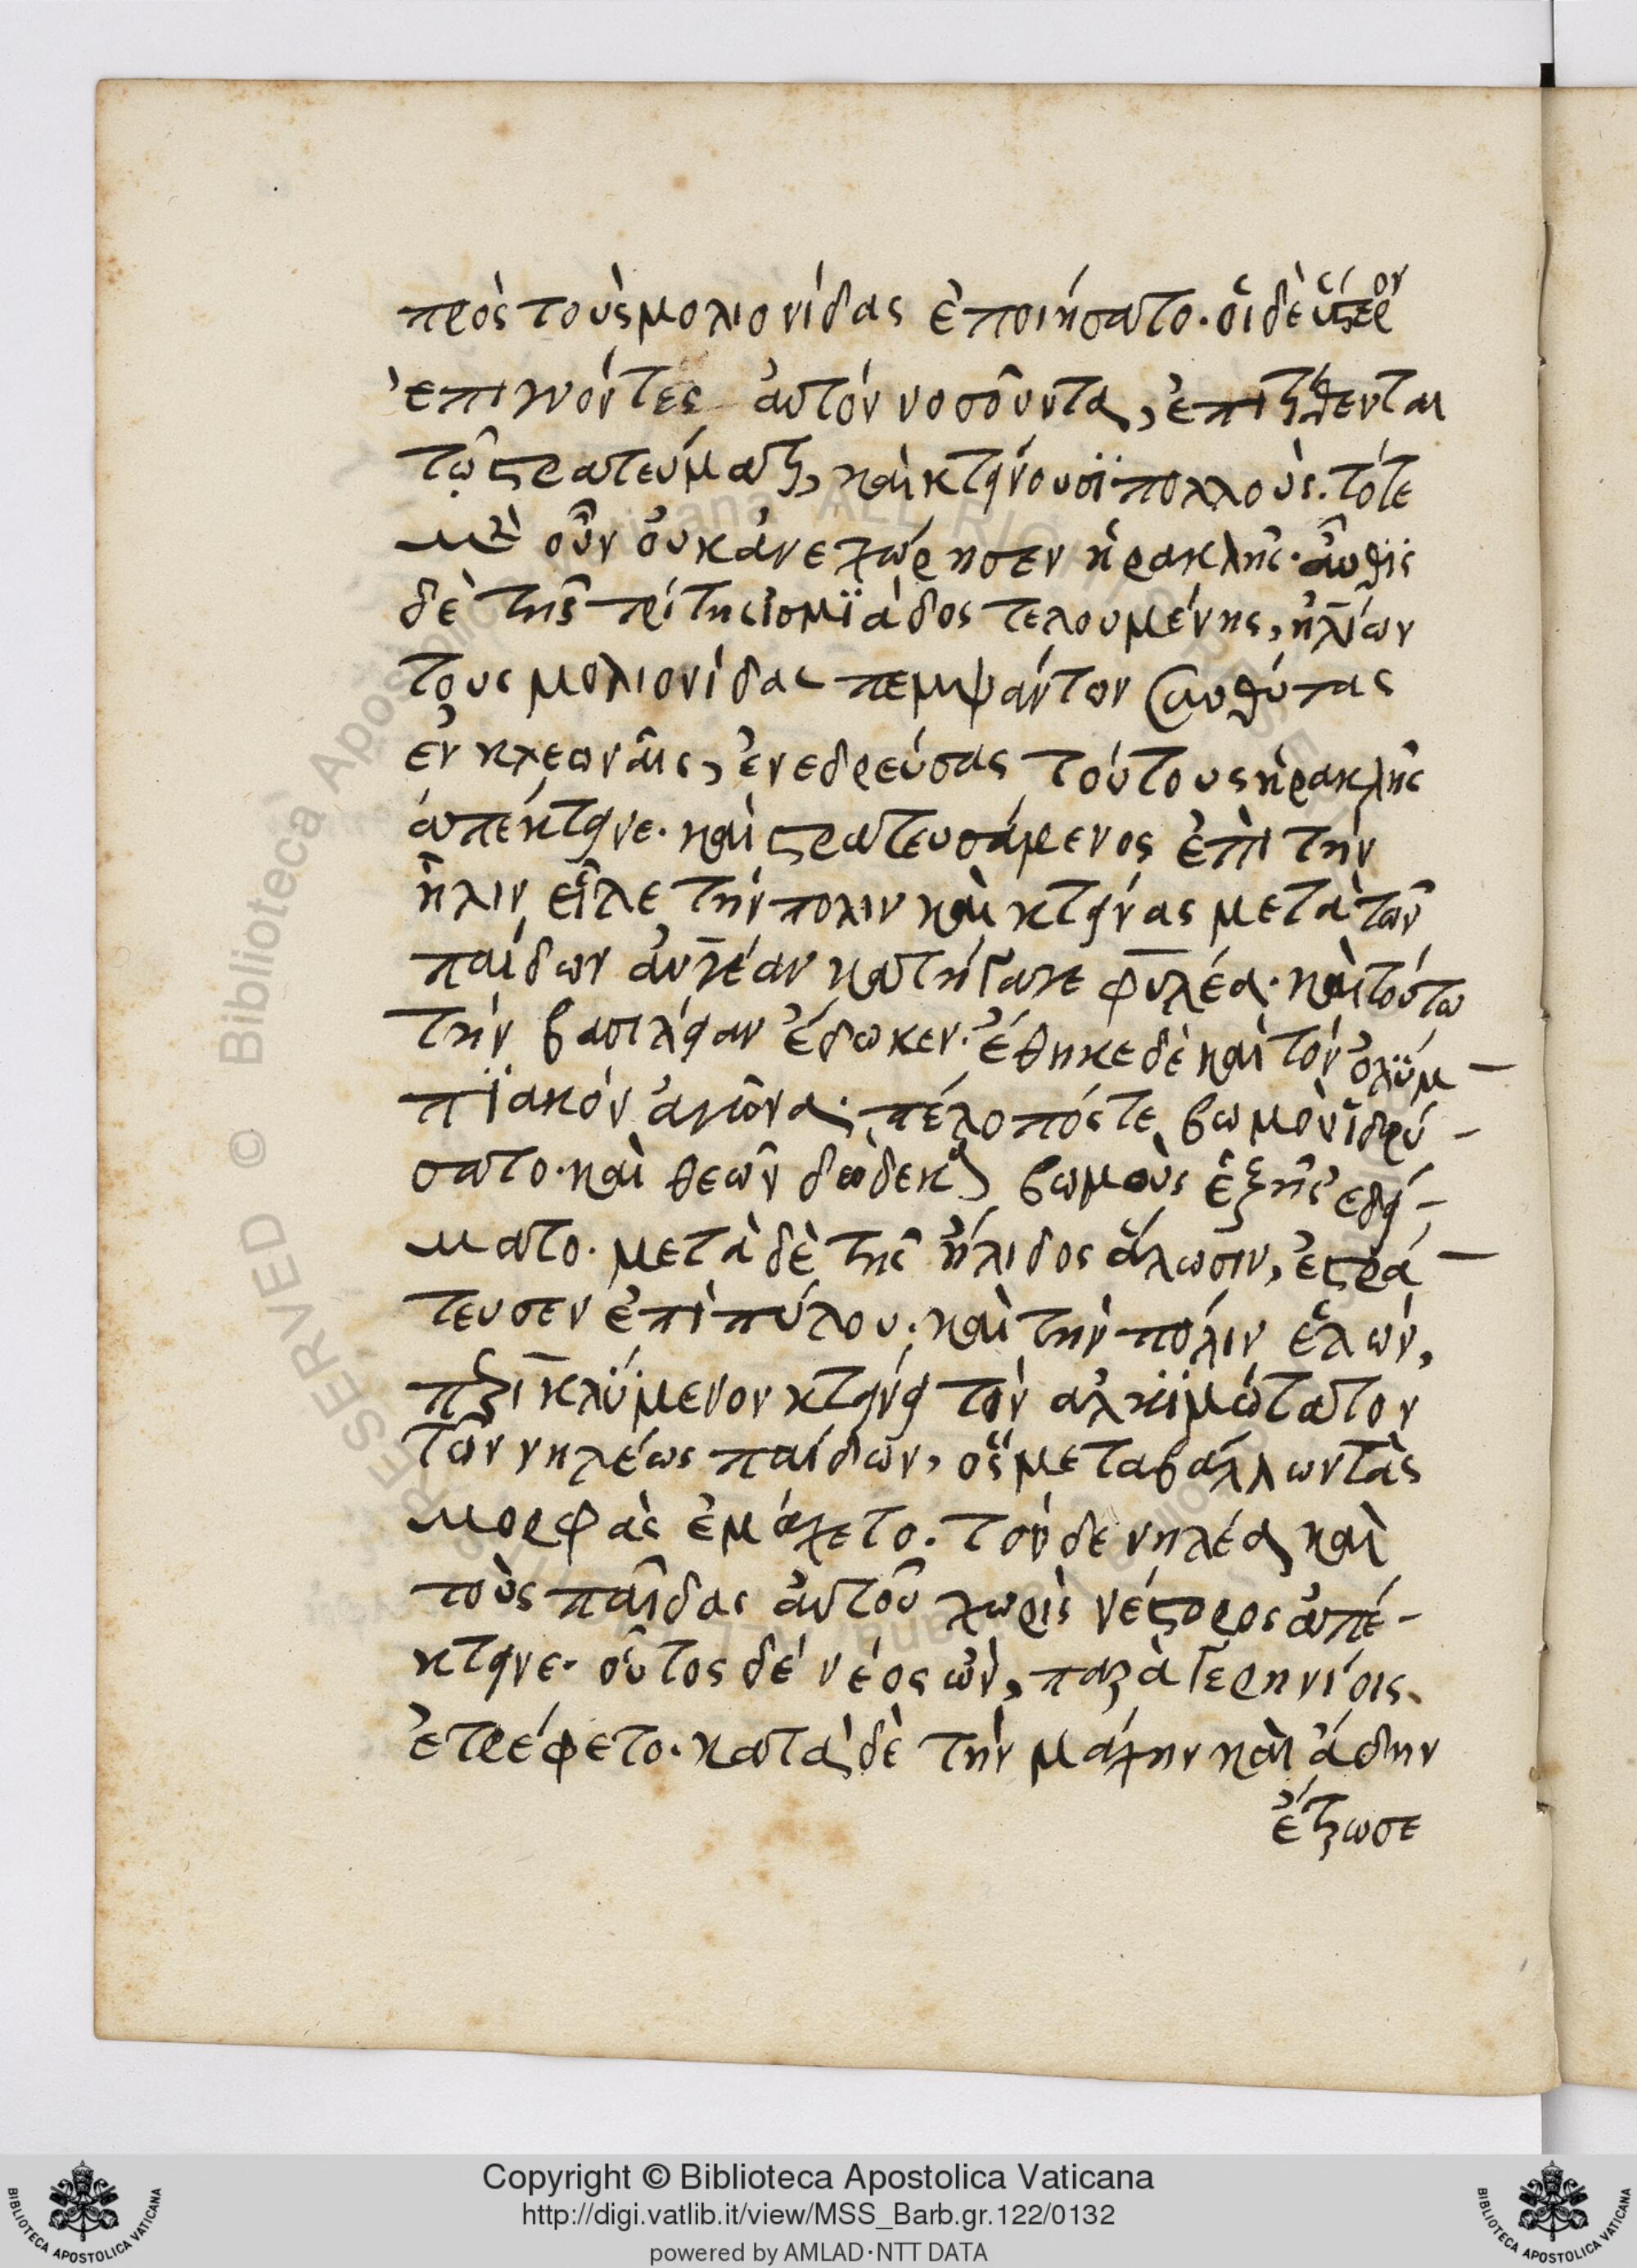 πρὸς τοὺς μολιονίδας ἐποιήσατο· οἱ δὲ ὕστερον
ἐπιγνόντες αὐτὸν νοσοῦντα, ἐπιτίθενται
τῷ στρατεύματι, καὶ κτείνουσϊ πολλούς. τότε
μὲν οὖν οὐκ ἀνεχώρησεν ἡρακλῆς· αὖθϊς
δὲ τῆς τρίτης ἰσμϊάδος τελουμένης, ἠλίων
τους μολιονίδας πεμψάντων συνθύτας
ἐν κλεωναῖς, ἐνεδρεύσας τούτους ἡρακλῆς
ἀπέκτεινε. καὶ στρατευσάμενος ἐπὶ τὴν
ἦλιν εἷλε τὴν πολιν καὶ κτείνας μετὰ τῶν
παίδων αὐγέαν κατήγαγε φυλέα· καὶ τούτω
τὴν βασιλείαν ἔδωκεν· ἔθηκε δὲ καὶ τὸν ὀλϋμ–
πϊακὸν ἀγῶνα· πέλοπός τε βωμὸν ἱδρύ–
σατο· καὶ θεῶν δώδεκα βωμοὺς ἑξῆς ἐδεί–
ματο. μετὰ δὲ τῆς ἤλιδος ἅλωσιν, ἐστρά–
τευσεν ἐπὶ πύλου· καὶ τὴν πόλιν ἑλών,
περικλΰμενον κτείνει τὸν ἀλκϊμώτατον
τῶν νηλέως παίδων, ὃς μεταβάλλων τὰς
μορφὰς ἐμάχετο. τὸν δε νηλέα καὶ
τοὺς παῖδας αὐτοῦ χωρὶς νέστορος ἀπέ–
κτεινε· οὗτος δέ νέος ὢν, παρὰ γερηνίοις
ἐτρέφετο· κατὰ δὲ τὴν μάχην καὶ ἅδην
ἔτρωσε
Copyright © Biblioteca Apostolica Vaticana
http://digi.vatlib.it/view/MSS_Barb.gr.122/0132
powered by AMLAD·NTT DATA